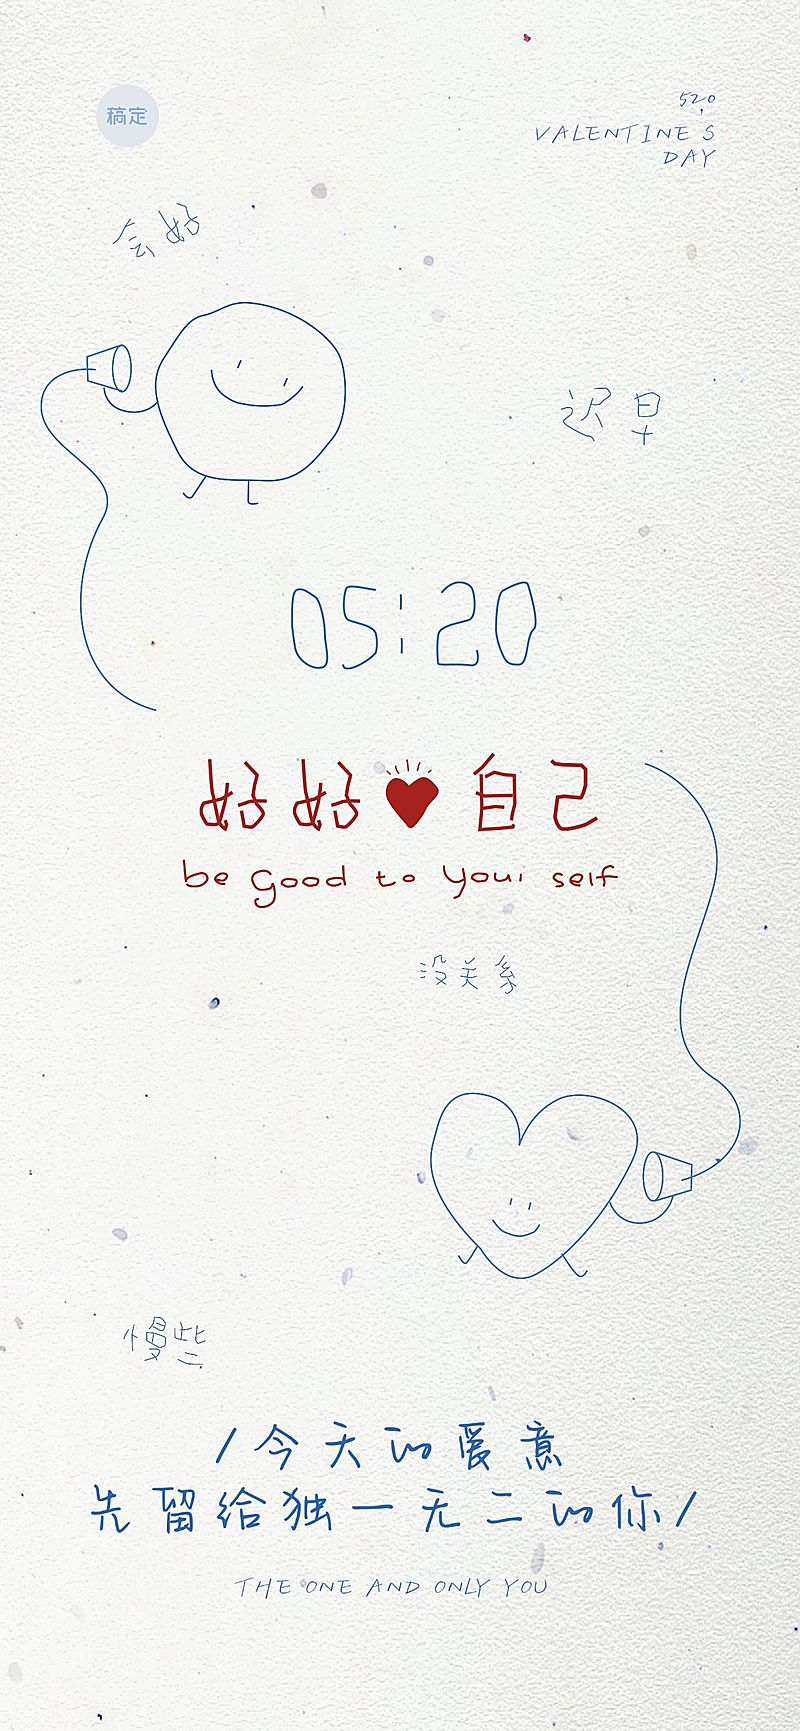 稿定
520
VALENTINE'S
DAY
会好
迟早
05:20
好好❤自己
be good to your self
没关系
慢些
/今天的爱意
先留给独一无二的你/
THE ONE AND ONLY YOU